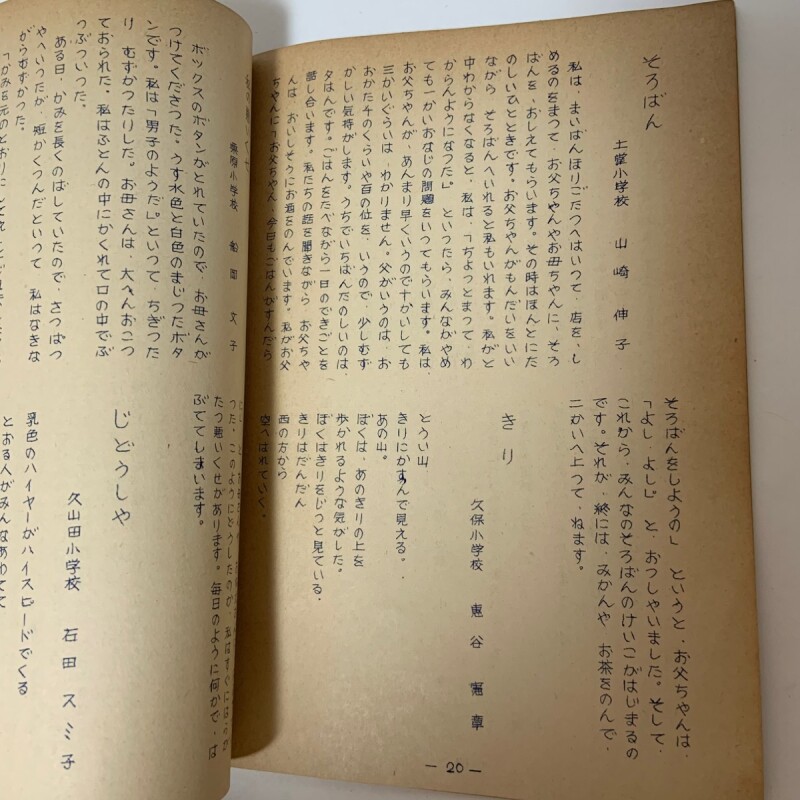 そろばん
土堂小学校 山崎伸子
私は、まいばんほりごたつへはいつて、店を、し
めるのをまつて、お父ちやんやお母ちやんに、そろ
ばんを、おしえてもらいます。その時はほんとにた
のしいひとときです。お父ちやんがもんだいをいい
ながら そろばんへいれると私もいれます。私がと
中わからなくなると、私は、「ちよつとまつて、わ
からんようになつた」。といつたら、みんなかやめ
ても一かいおなじの問題をいつてもらいます。私は、
お父ちやんが、あんまり早くいうので十かいしても
三かいぐらいは、わかりません。父がいうのは、お
おかた千のくらいや百の位を、いうので、少しむず
かしい気持がします。うちでいちばんたのしいのは、
夕はんです。ごはんをたべながら一日のできごとを
話し合います。私たちの話を聞きながら お父ちや
んは、おいしそうにお酒をのんでいます。私がお父
ちやんに「お父ちやん、今日もごはんがすんだら
そろばんをしようの」 というと、お父ちやんは、
「よし、よし」。と、おつしやいました。そして、
これから、みんなのそろばんのけいこがはじまるの
です。それが、終には、みかんや お茶をのんで、
二かいへ上つて、ねます。
きり
久保小学校 恵谷憲章
とうい山
きりにかすんで見える。
あの山。
ぼくは、あのきりの上を
歩かれるような気がした。
ぼくはきりをじつと見ている。
きりはだんだん
西の方から
空へはれていく。
― 20 ―
小学校 船岡文子
ボツクスのボタンがとれていたので、お母さんが
つけてくださつた。うす水色と白色のまじつたボタ
ンです。私は「男子のようだ」。といつて、ちぎつた
り むずかつたりした。お母さんは、大へんおこつ
ておられた。私はふとんの中にかくれて口の中でぶ
つぶついつた。
ある日、かみを長くのばしていたので、さつぱつ
やへいつたが、短かくつんだといつて 私はなきな
がらむずかつた。
「かみを元のとおりに
つた。このようにどうしたのか、私はすぐにはぶの
たつ悪いくせがあります。毎日のように何かで、は
ぶててしまいます。
じどうしや
久山田小学校 石田スミ子
乳色のハイヤーがハイスピードでくる
とおる人がみんなあわてて